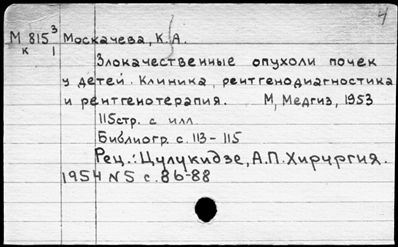 4
М 815 3 Москачева, К. А.
к 1
Злокачественные опухоли почек
у детей. Клиника, рентгенодиагностика
и рентгенотерапия. М, Медгиз, 1953
115стр. с илл.
Библиогр. с. 113-115
Рец.: Цулукидзе, А.П. Хирургия.
1954 N5 с. 86-88